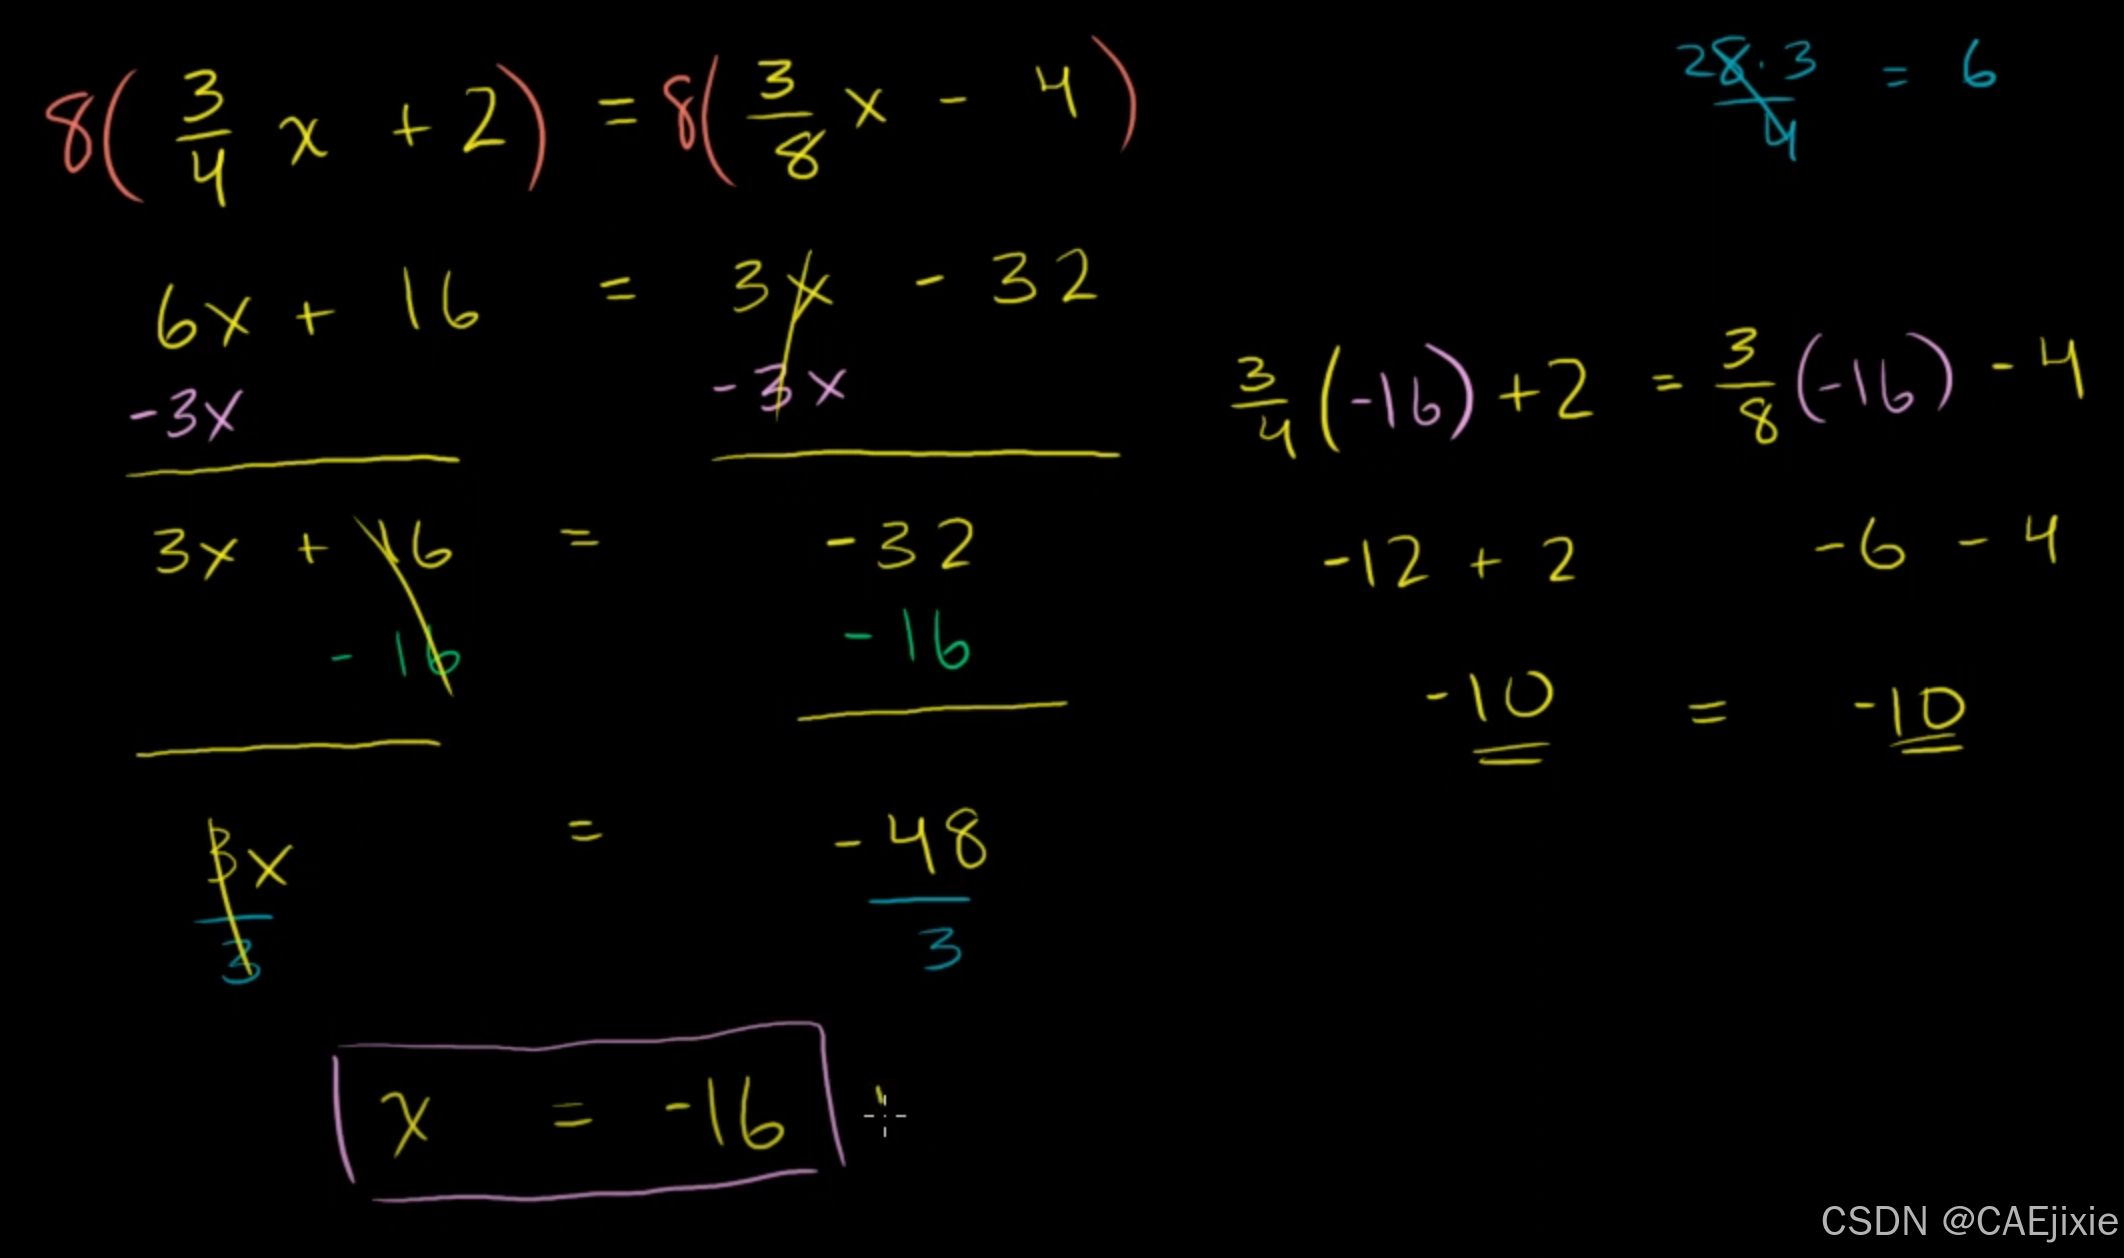 8(3/4 x + 2) = 8(3/8 x - 4)
28·3/4 = 6
6x + 16 = 3x - 32
-3x -3x
3x + 16 = -32
-16 -16
3x/3 = -48/3
x = -16
3/4(-16) + 2 = 3/8(-16) - 4
-12 + 2 -6 - 4
-10 = -10
CSDN @CAEjixie